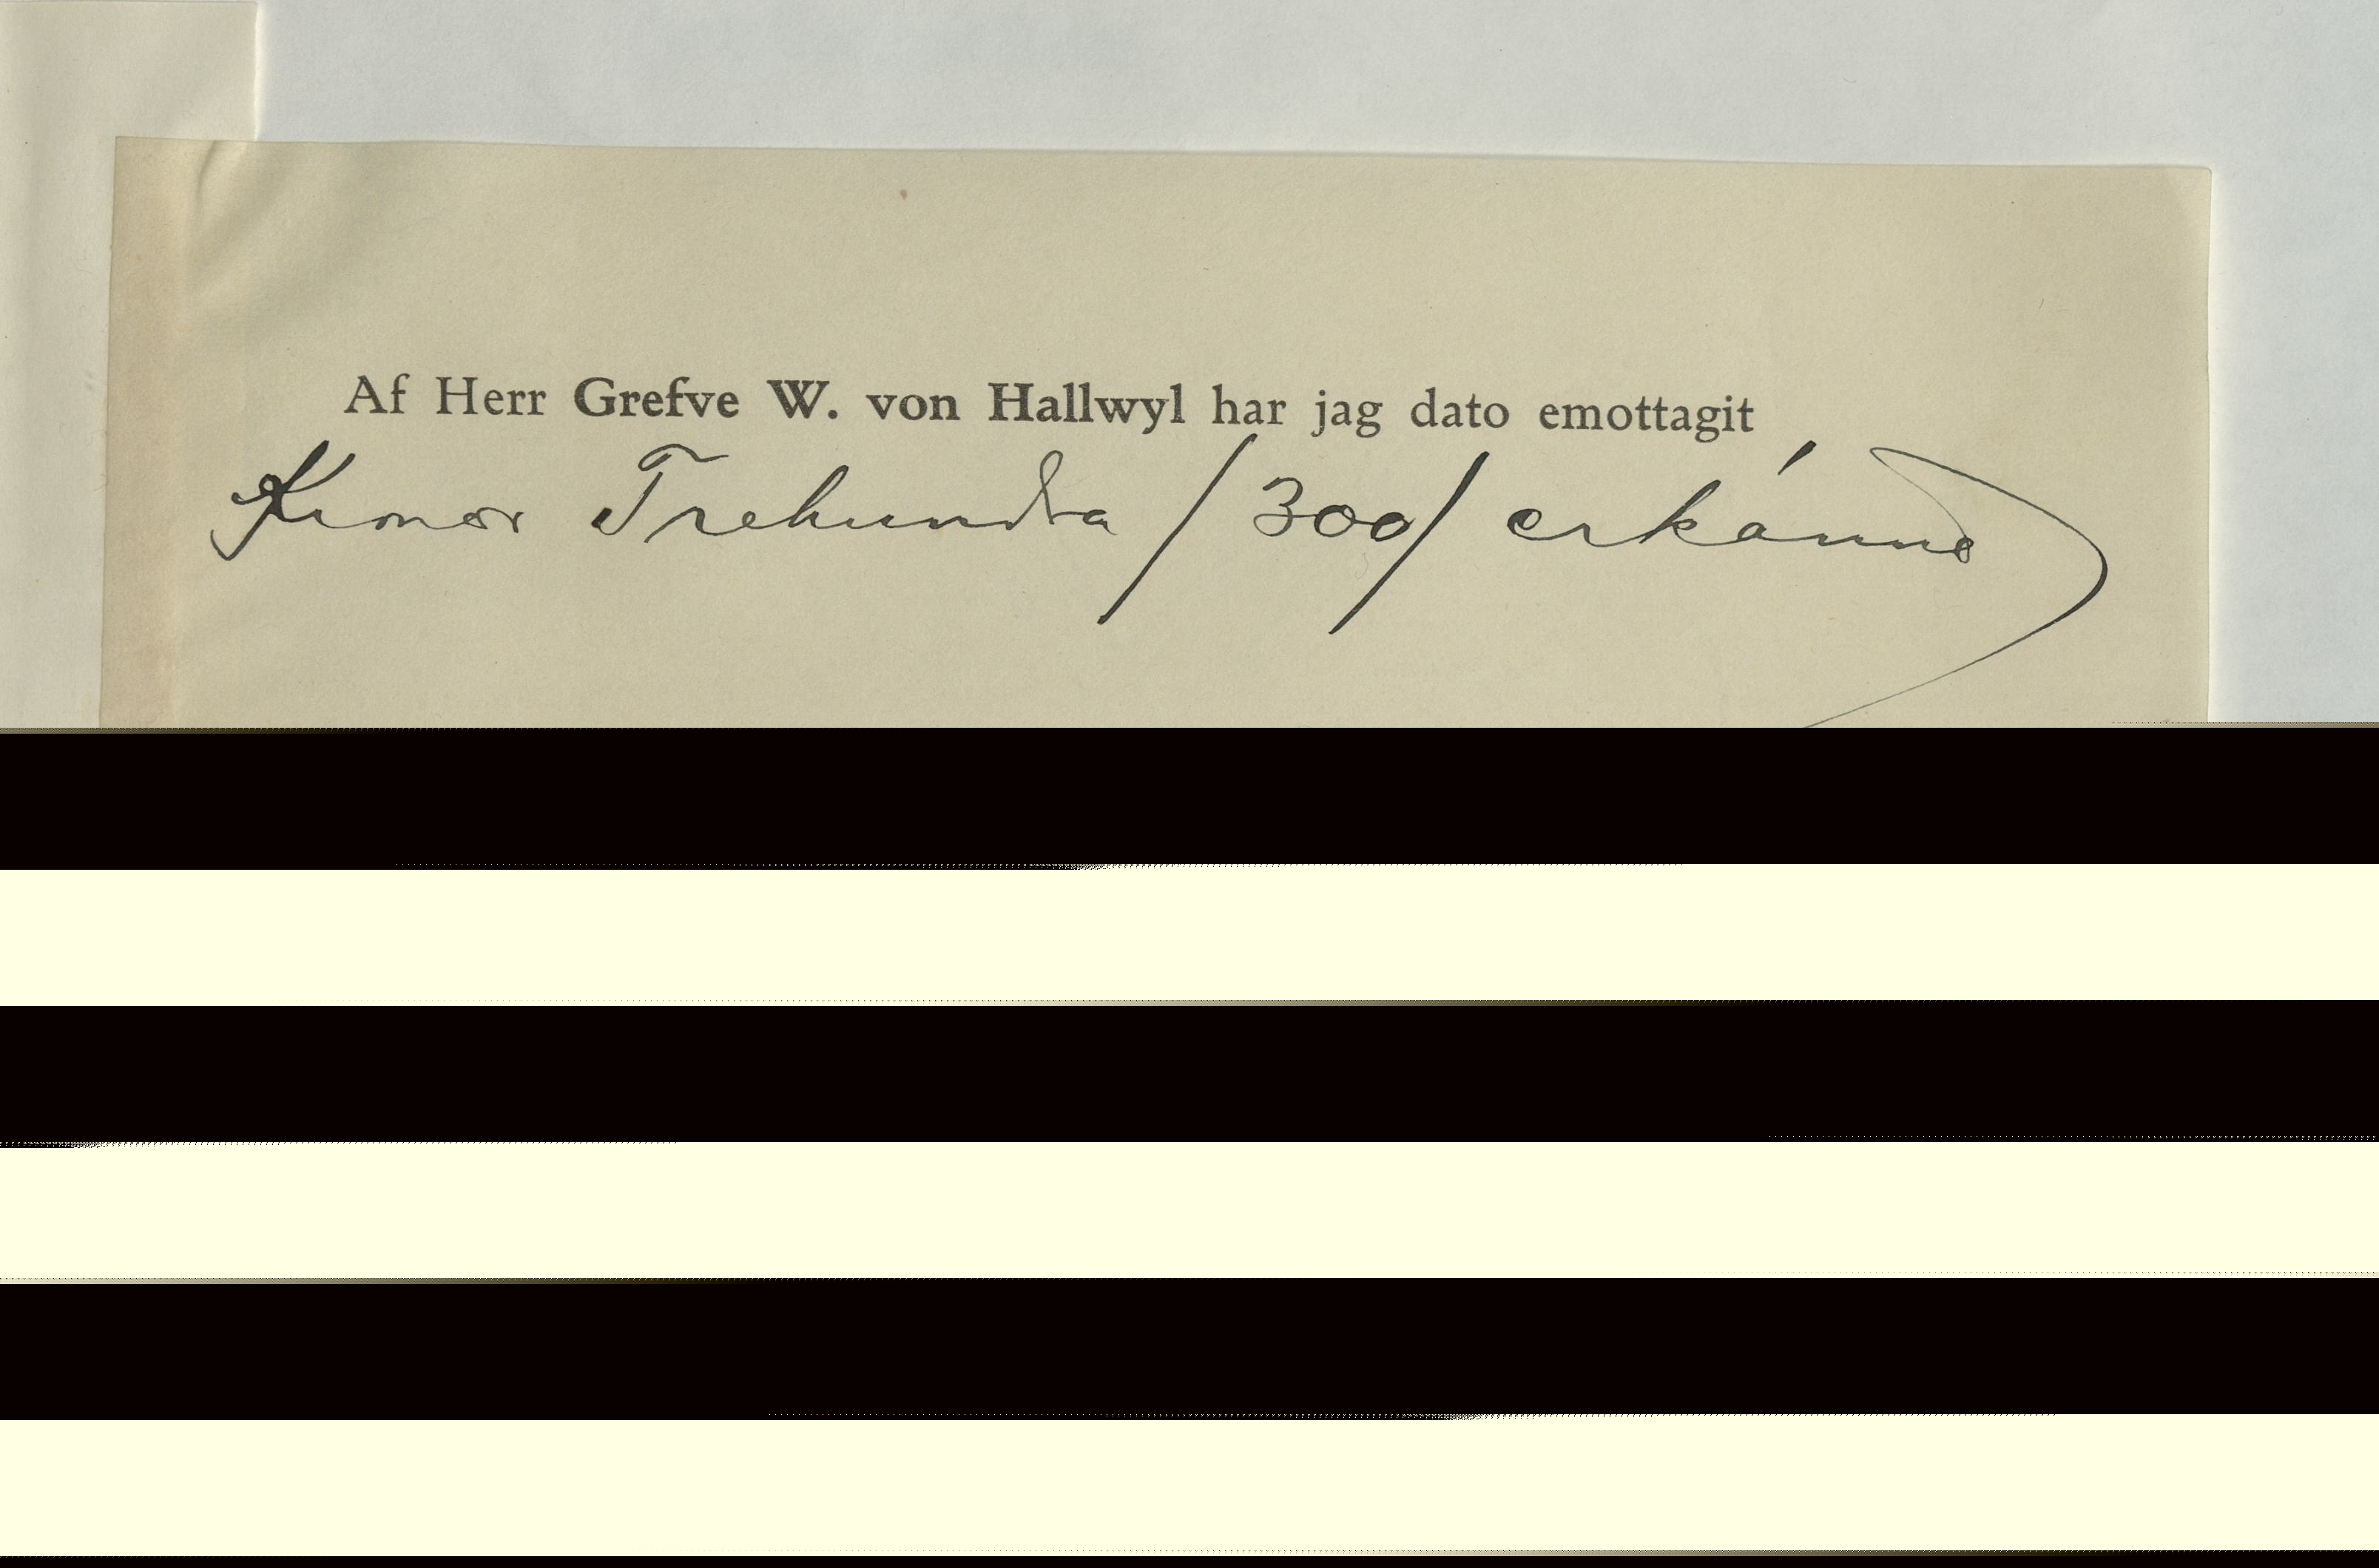 Af Herr Grefve W. von Hallwyl har jag dato emottagit
Kronor Trehundra /300/ erkänne